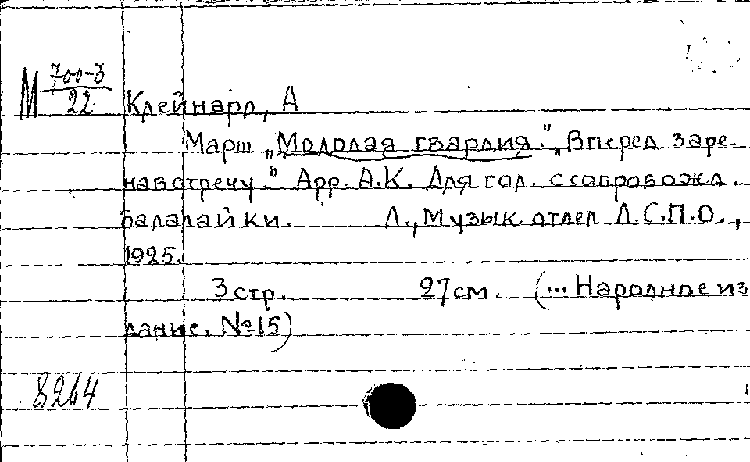 М 700-3
22
Клейнард, А
Марш „Молодая гвардия". „Вперед заре
навстречу." Арр. А.К. Для гол. с сопровожд.
балалайки. Л., Музык. отдел Л.С.П.О.,
1925.
3 стр. 27 см. (... Народное из
дание. №15)
8264